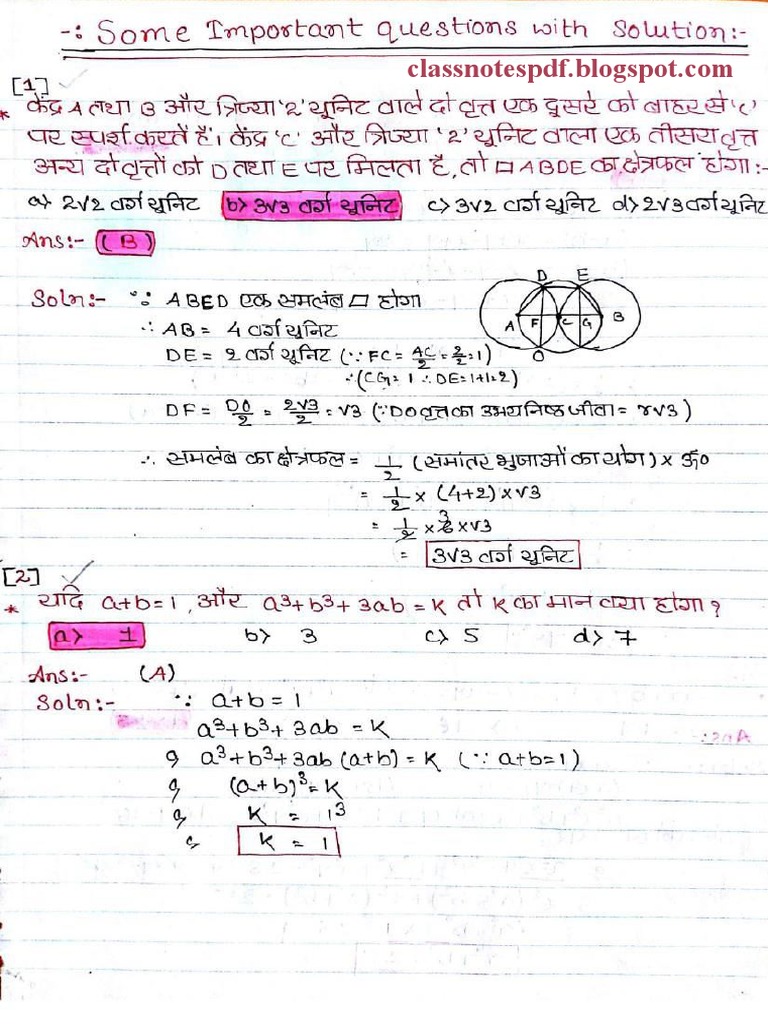 -: Some Important questions with Solution:-
classnotespdf.blogspot.com
[1]
* केंद्र A तथा B और त्रिज्या '2' यूनिट वाले दो वृत्त एक दूसरे को बाहर से 'C'
पर स्पर्श करते हैं। केंद्र 'C' और त्रिज्या '2' यूनिट वाला एक तीसरा वृत्त
अन्य दो वृत्तों को D तथा E पर मिलता है, तो □ ABDE का क्षेत्रफल होगा:-
a> 2√2 वर्ग यूनिट b> 3√3 वर्ग यूनिट c> 3√2 वर्ग यूनिट d> 2√3 वर्ग यूनिट
Ans:- (B)
Soln:- ∵ ABED एक समलंब □ होगा
D E
A F C G B
O
∴ AB = 4 वर्ग यूनिट
DE = 2 वर्ग यूनिट (∵ FC = AC/2 = 2/2 = 1)
∴ (CG = 1 ∴ DE = 1+1=2)
DF = DO/2 = 2√3/2 = √3 (∵ DO वृत्त का उभयनिष्ठ जीवा = r√3)
∴ समलंब का क्षेत्रफल = 1/2 (समांतर भुजाओं का योग) × ऊँ०
= 1/2 × (4+2) × √3
= 1/2 × 6 3 × √3
= 3√3 वर्ग यूनिट
[2]
* यदि a+b=1, और a³+b³+3ab = K तो K का मान क्या होगा?
a> 1 b> 3 c> 5 d> 7
Ans:- (A)
Soln:- ∵ a+b = 1
a³+b³+3ab = K
a³+b³+3ab (a+b) = K (∵ a+b=1)
(a+b)³ = K
K = 1³
K = 1